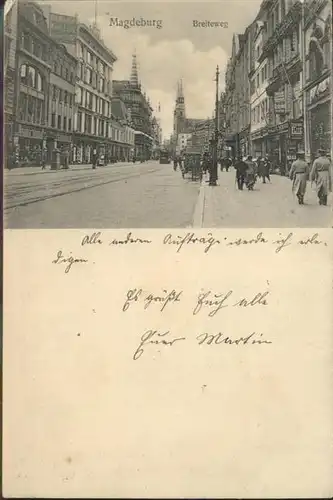 Magdeburg Breiteweg
Alle anderen Aufträge werde ich erle-
digen.
Es grüßt Euch alle
Euer Martin